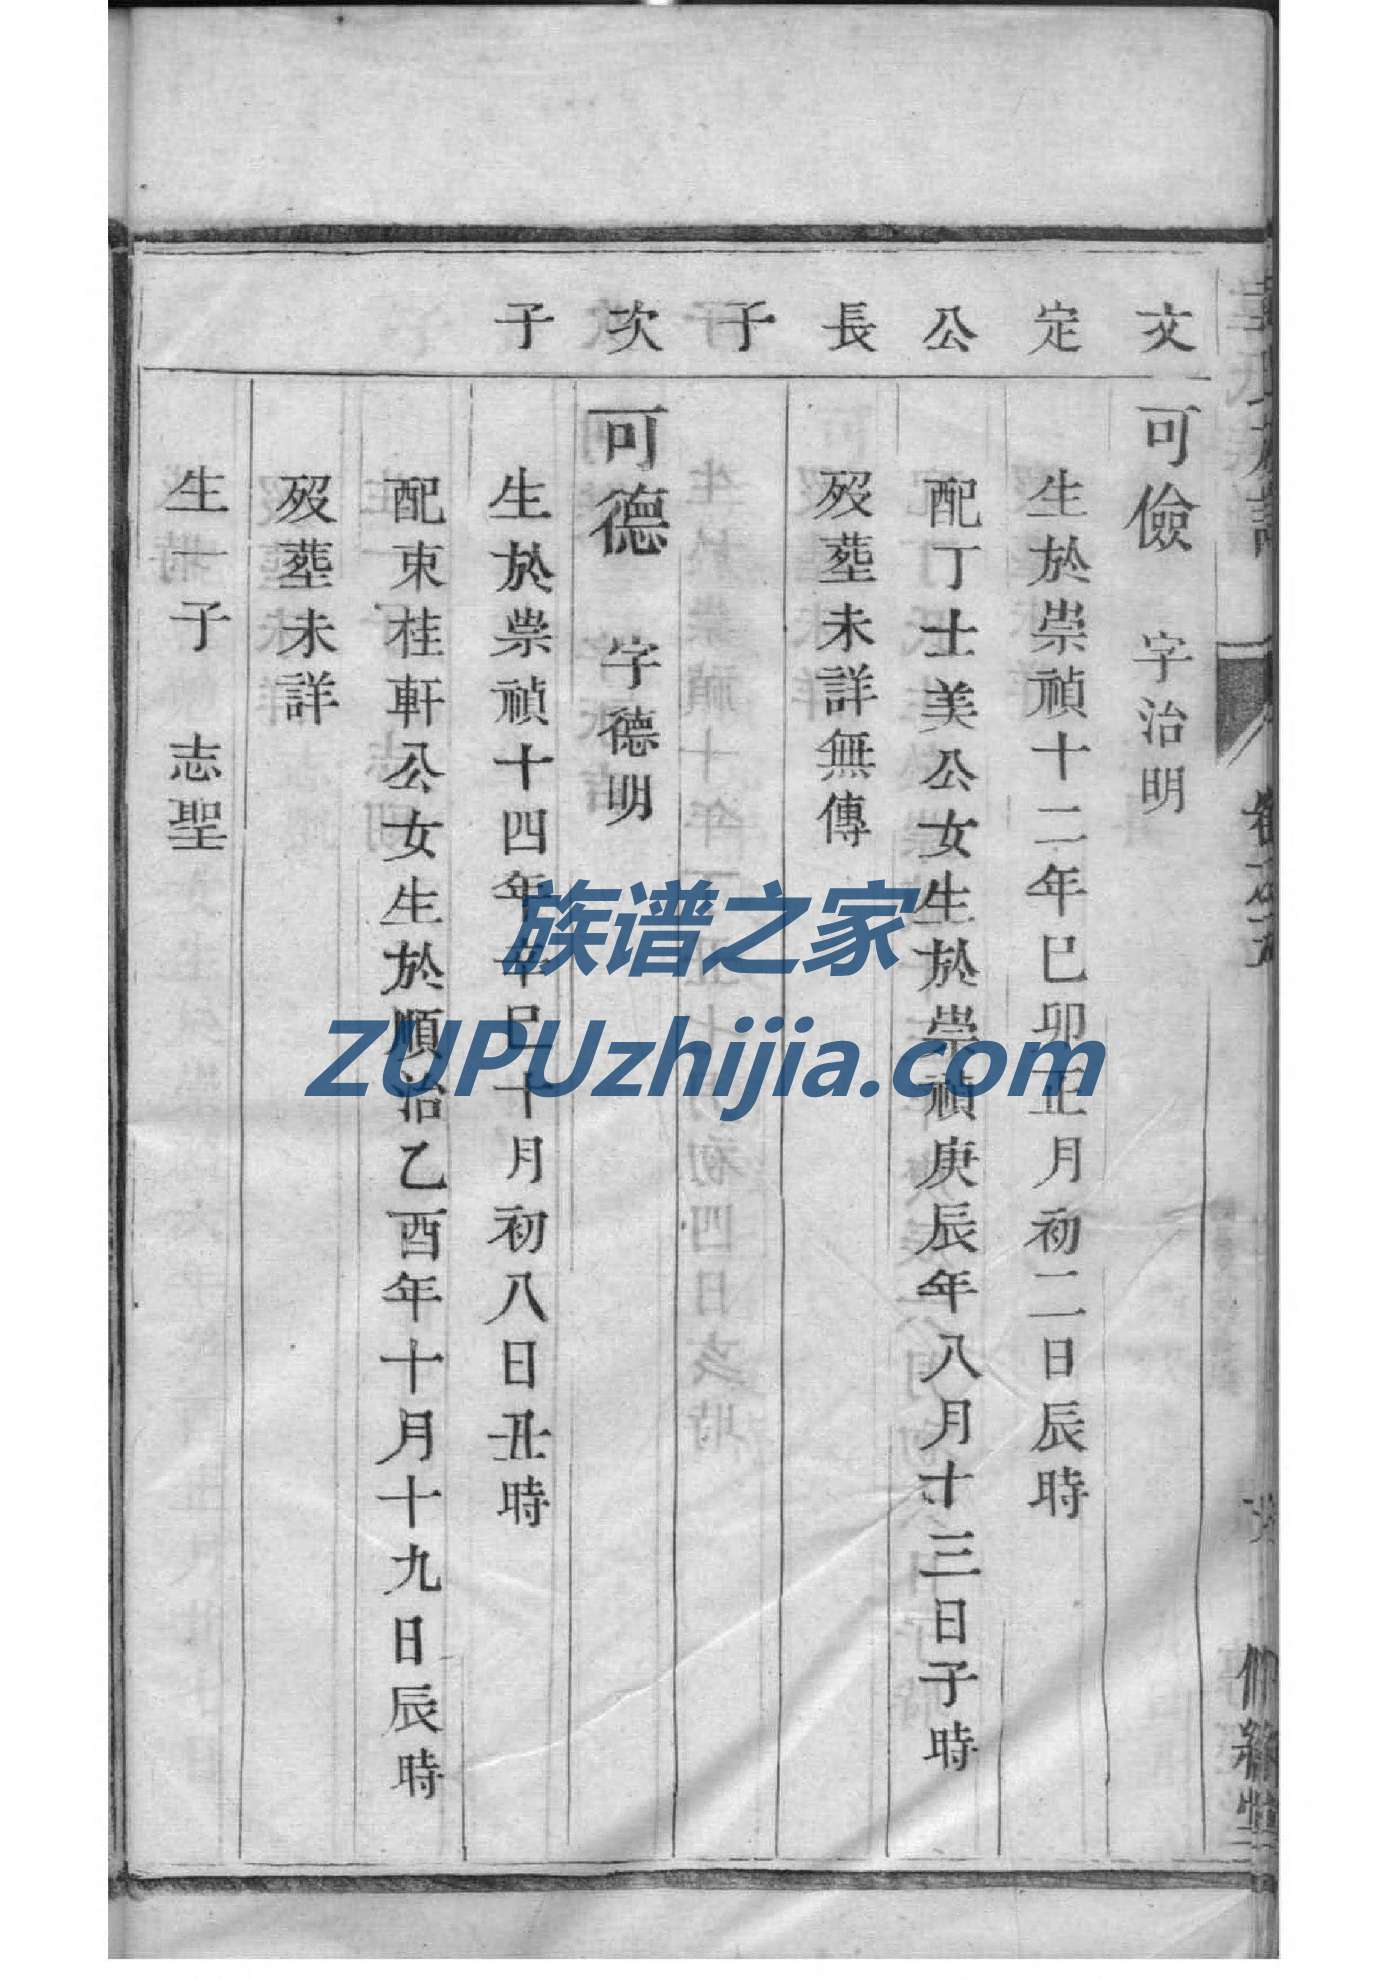 文定公長子次子
可儉 字治明
生於崇禎十二年巳卯正月初二日辰時
配丁士美公女生於崇禎庚辰年八月十三日子時
歿塟未詳無傳
可德 字德明
生於崇禎十四年辛巳十月初八日丑時
配束桂軒公女生於順治乙酉年十月十九日辰時
歿塟未詳
生一子 志聖
族谱之家
ZUPUzhijia.com